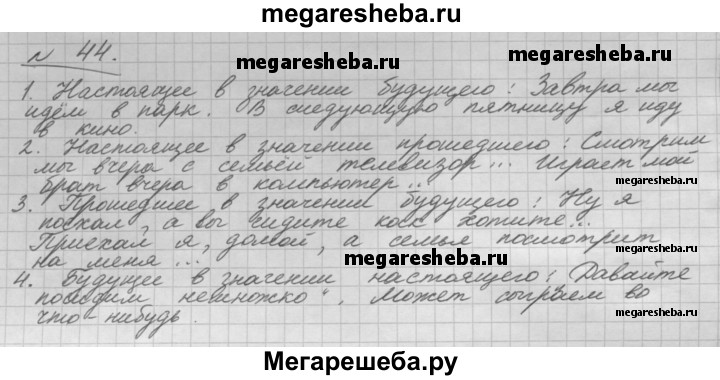 megaresheba.ru
N 44.
megaresheba.ru
megaresheba.ru
1. Настоящее в значении будущего: Завтра мы
идём в парк. В следующую пятницу я иду
в кино.
megaresheba.ru
2. Настоящее в значении прошедшего: Смотрим
мы вчера с семьёй телевизор... Играет мой
брат вчера в компьютер...
megaresheba.ru
3. Прошедшее в значении будущего: Ну я
поехал, а вы сидите как хотите...
Приехал я, домой, а семья посмотрит
на меня...
megaresheba.ru
4. Будущее в значении настоящего: Давайте
посидим немножко". Может сыграем во
что-нибудь.
megaresheba.ru
Мегарешеба.ру